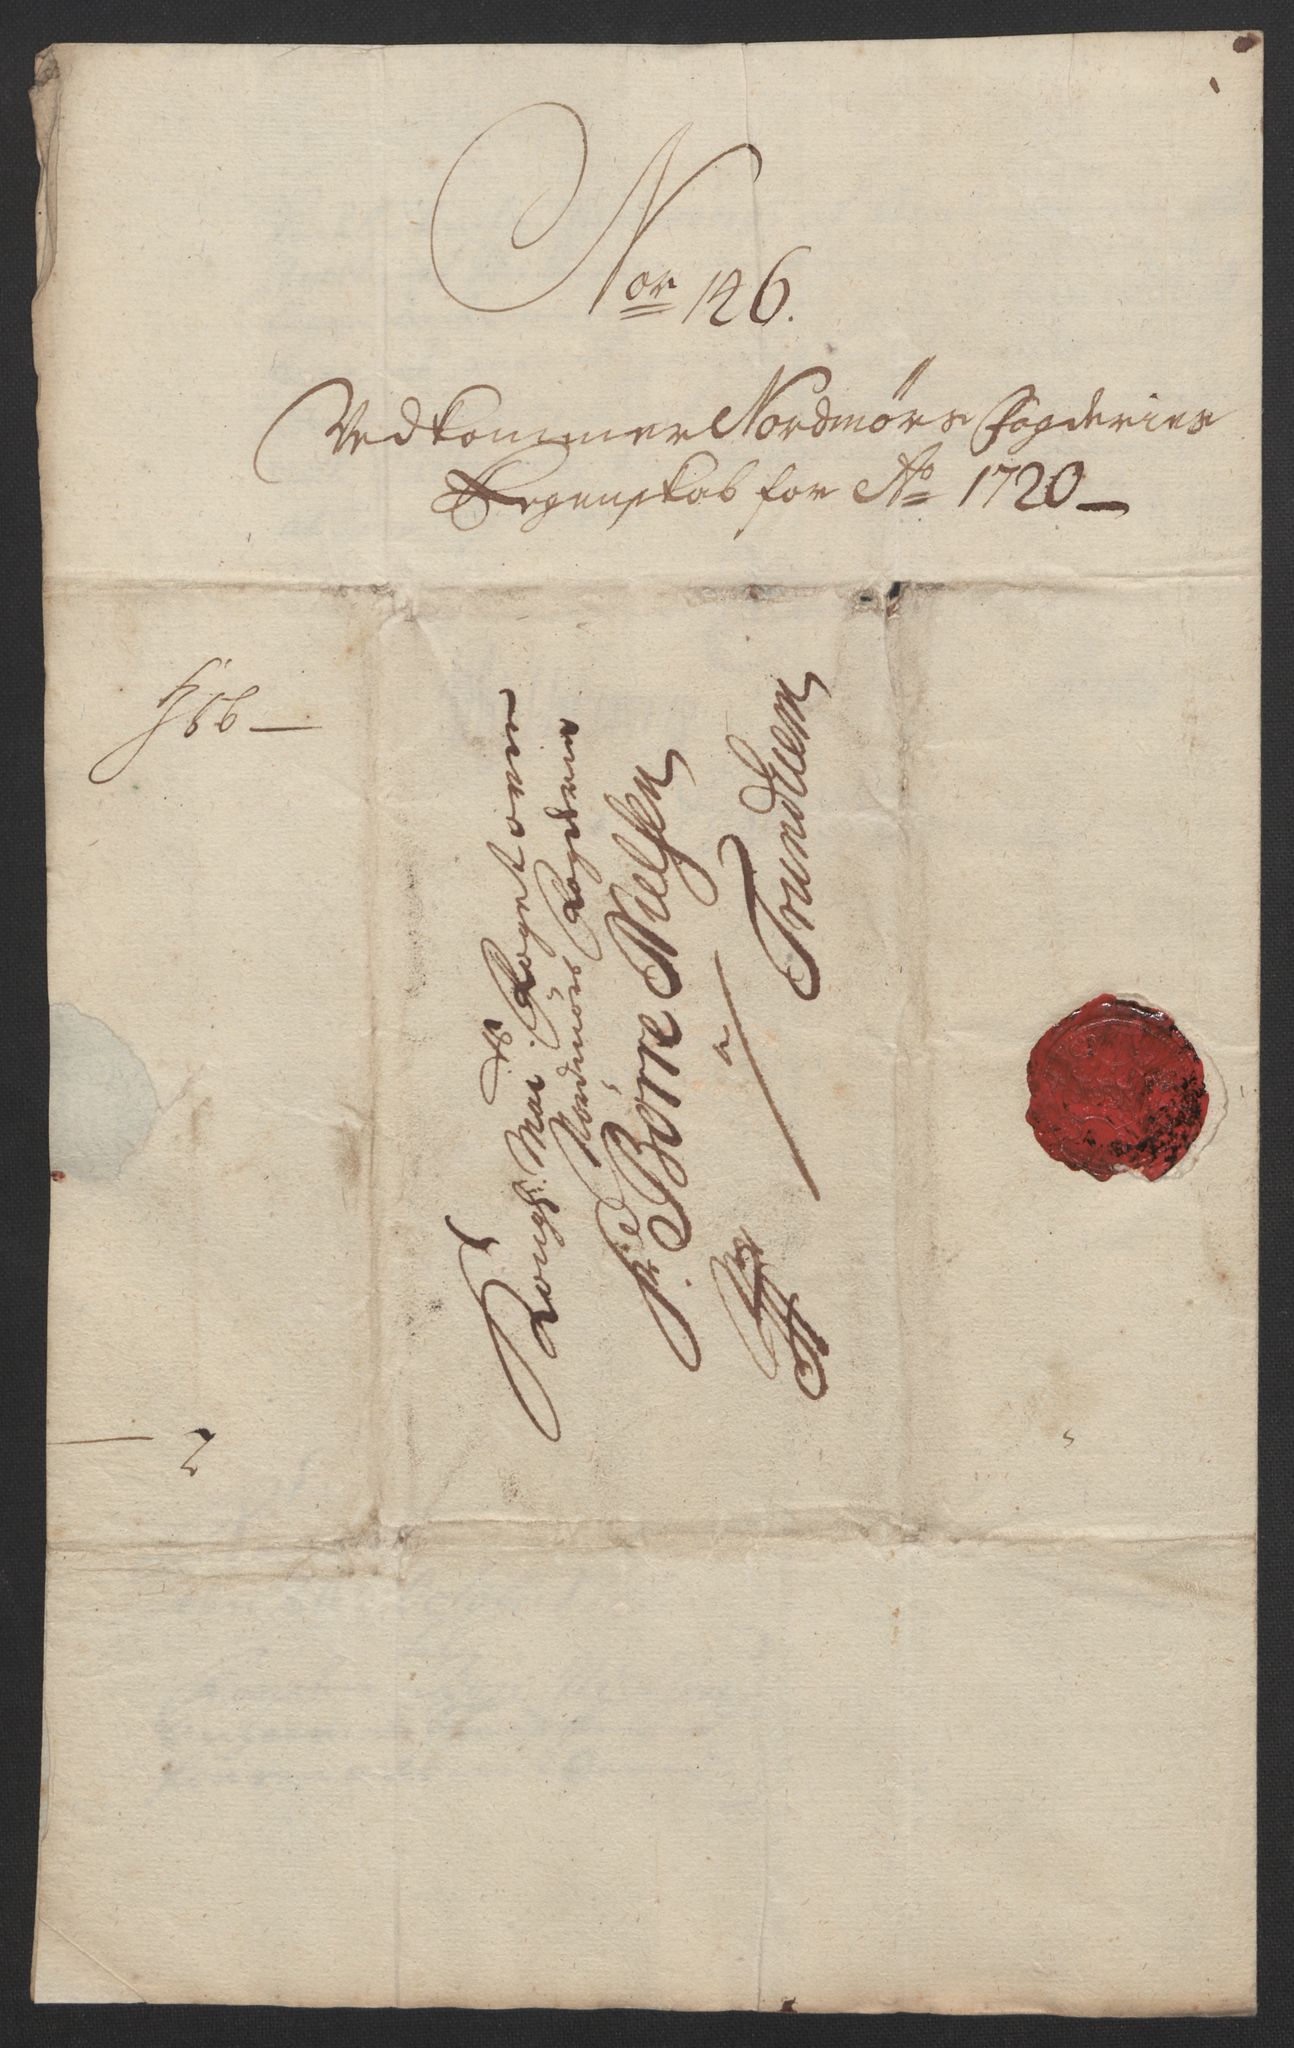 Nor 146.
Vedkommer Nordmørs Fogderies
Regenskab for Ao 1720
Kongl. Mai. Foget over
Nordmørs Fogderie
Sr. Børre Nielsen
a
Trundhem